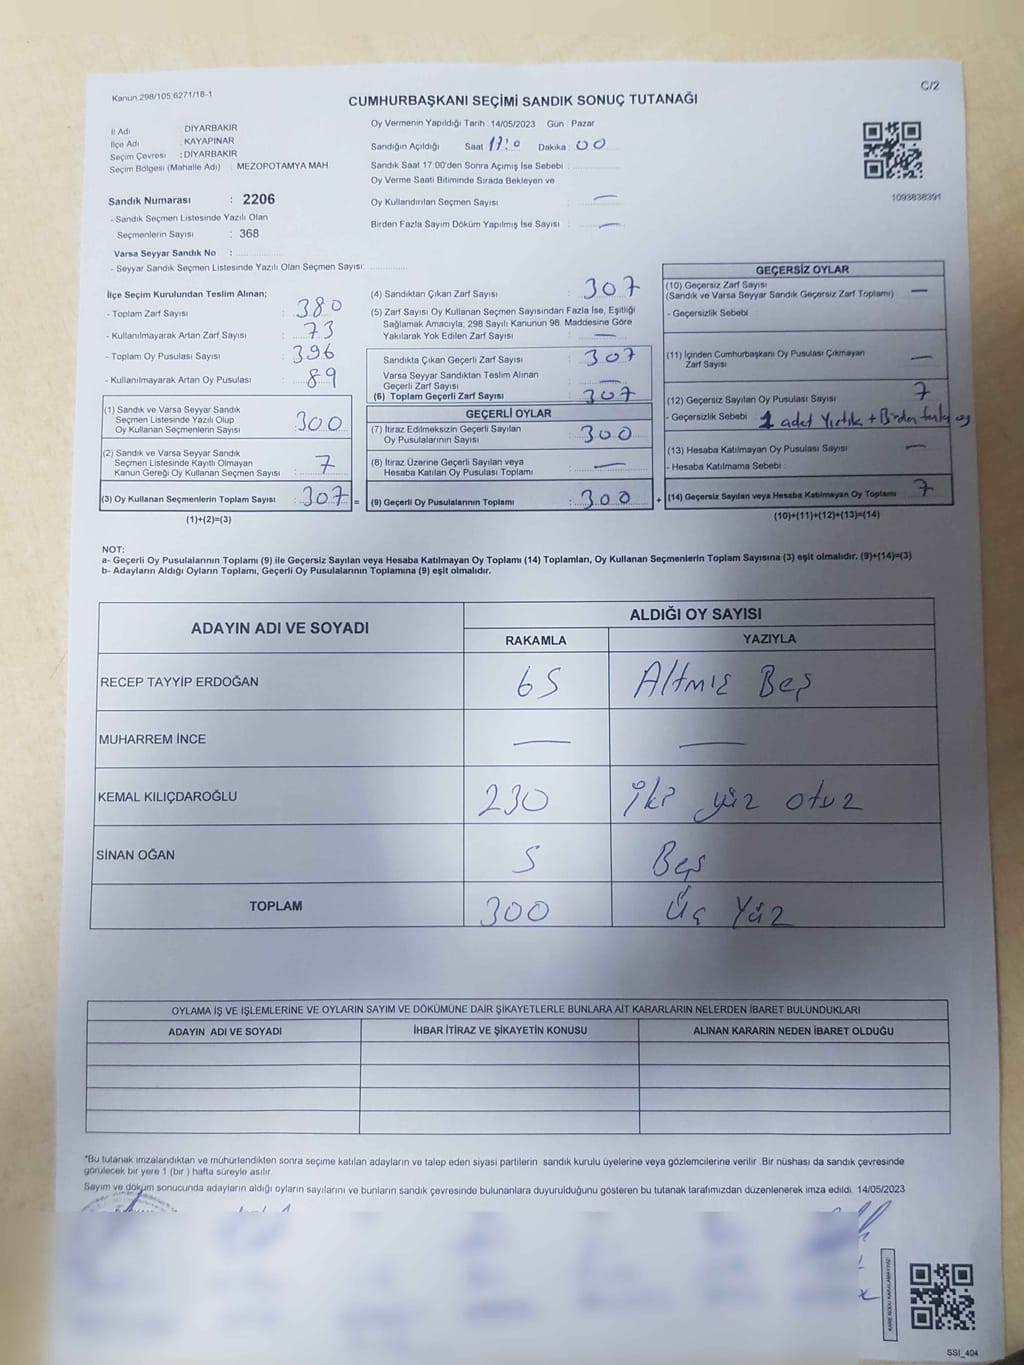 Kanun 298/105,6271/18-1
C/2
CUMHURBAŞKANI SEÇİMİ SANDIK SONUÇ TUTANAĞI
İl Adı DİYARBAKIR
İlçe Adı KAYAPINAR
Seçim Çevresi : DİYARBAKIR
Seçim Bölgesi (Mahalle Adı) : MEZOPOTAMYA MAH.
Sandık Numarası : 2206
- Sandık Seçmen Listesinde Yazılı Olan
Seçmenlerin Sayısı : 368
Varsa Seyyar Sandık No :
- Seyyar Sandık Seçmen Listesinde Yazılı Olan Seçmen Sayısı:
Oy Vermenin Yapıldığı Tarih : 14/05/2023 Gün : Pazar
Sandığın Açıldığı Saat Dakika : 00
Sandık Saat 17:00'den Sonra Açımış İse Sebebi :
Oy Verme Saati Bitiminde Sırada Bekleyen ve
Oy Kullandırılan Seçmen Sayısı : —
Birden Fazla Sayım Döküm Yapılmış İse Sayısı : —
1093838391
İlçe Seçim Kurulundan Teslim Alınan;
- Toplam Zarf Sayısı : 380
- Kullanılmayarak Artan Zarf Sayısı : 73
- Toplam Oy Pusulası Sayısı : 396
- Kullanılmayarak Artan Oy Pusulası : 89
(1) Sandık ve Varsa Seyyar Sandık
Seçmen Listesinde Yazılı Olup
Oy Kullanan Seçmenlerin Sayısı : 300
(2) Sandık ve Varsa Seyyar Sandık
Seçmen Listesinde Kayıtlı Olmayan
Kanun Gereği Oy Kullanan Seçmen Sayısı : 7
(3) Oy Kullanan Seçmenlerin Toplam Sayısı : 307 =
(1)+(2)=(3)
(4) Sandıktan Çıkan Zarf Sayısı : 307
(5) Zarf Sayısı Oy Kullanan Seçmen Sayısından Fazla İse, Eşitliği
Sağlamak Amacıyla, 298 Sayılı Kanunun 98. Maddesine Göre
Yakılarak Yok Edilen Zarf Sayısı : —
Sandıkta Çıkan Geçerli Zarf Sayısı : 307
Varsa Seyyar Sandıktan Teslim Alınan
Geçerli Zarf Sayısı : —
(6) Toplam Geçerli Zarf Sayısı : 307
GEÇERLİ OYLAR
(7) İtiraz Edilmeksizin Geçerli Sayılan
Oy Pusulalarının Sayısı : 300
(8) İtiraz Üzerine Geçerli Sayılan veya
Hesaba Katılan Oy Pusulası Toplamı : —
(9) Geçerli Oy Pusulalarının Toplamı : 300 +
GEÇERSİZ OYLAR
(10) Geçersiz Zarf Sayısı
(Sandık ve Varsa Seyyar Sandık Geçersiz Zarf Toplamı) : —
- Geçersizlik Sebebi
(11) İçinden Cumhurbaşkanı Oy Pusulası Çıkmayan
Zarf Sayısı —
(12) Geçersiz Sayılan Oy Pusulası Sayısı 7
- Geçersizlik Sebebi 1 adet Yırtık + Birden fazla oy
(13) Hesaba Katılmayan Oy Pusulası Sayısı : —
- Hesaba Katılmama Sebebi
(14) Geçersiz Sayılan veya Hesaba Katılmayan Oy Toplamı : 7
(10)+(11)+(12)+(13)=(14)
NOT:
a- Geçerli Oy Pusulalarının Toplamı (9) ile Geçersiz Sayılan veya Hesaba Katılmayan Oy Toplamı (14) Toplamları, Oy Kullanan Seçmenlerin Toplam Sayısına (3) eşit olmalıdır. (9)+(14)=(3)
b- Adayların Aldığı Oyların Toplamı, Geçerli Oy Pusulalarının Toplamına (9) eşit olmalıdır.
ADAYIN ADI VE SOYADI ALDIĞI OY SAYISI
RAKAMLA YAZIYLA
RECEP TAYYİP ERDOĞAN 65 Altmış Beş
MUHARREM İNCE — —
KEMAL KILIÇDAROĞLU 230 İki yüz otuz
SİNAN OĞAN 5 Beş
TOPLAM 300 Üç Yüz
OYLAMA İŞ VE İŞLEMLERİNE VE OYLARIN SAYIM VE DÖKÜMÜNE DAİR ŞİKAYETLERLE BUNLARA AİT KARARLARIN NELERDEN İBARET BULUNDUKLARI
ADAYIN ADI VE SOYADI İHBAR İTİRAZ VE ŞİKAYETİN KONUSU ALINAN KARARIN NEDEN İBARET OLDUĞU
*Bu tutanak imzalandıktan ve mühürlendikten sonra seçime katılan adayların ve talep eden siyasi partilerin sandık kurulu üyelerine veya gözlemcilerine verilir. Bir nüshası da sandık çevresinde
görülecek bir yere 1 (bir ) hafta süreyle asılır.
Sayım ve döküm sonucunda adayların aldığı oyların sayılarını ve bunların sandık çevresinde bulunanlara duyurulduğunu gösteren bu tutanak tarafımızdan düzenlenerek imza edildi. 14/05/2023
KARE KODU KARALAMAYINIZ
SSI_404